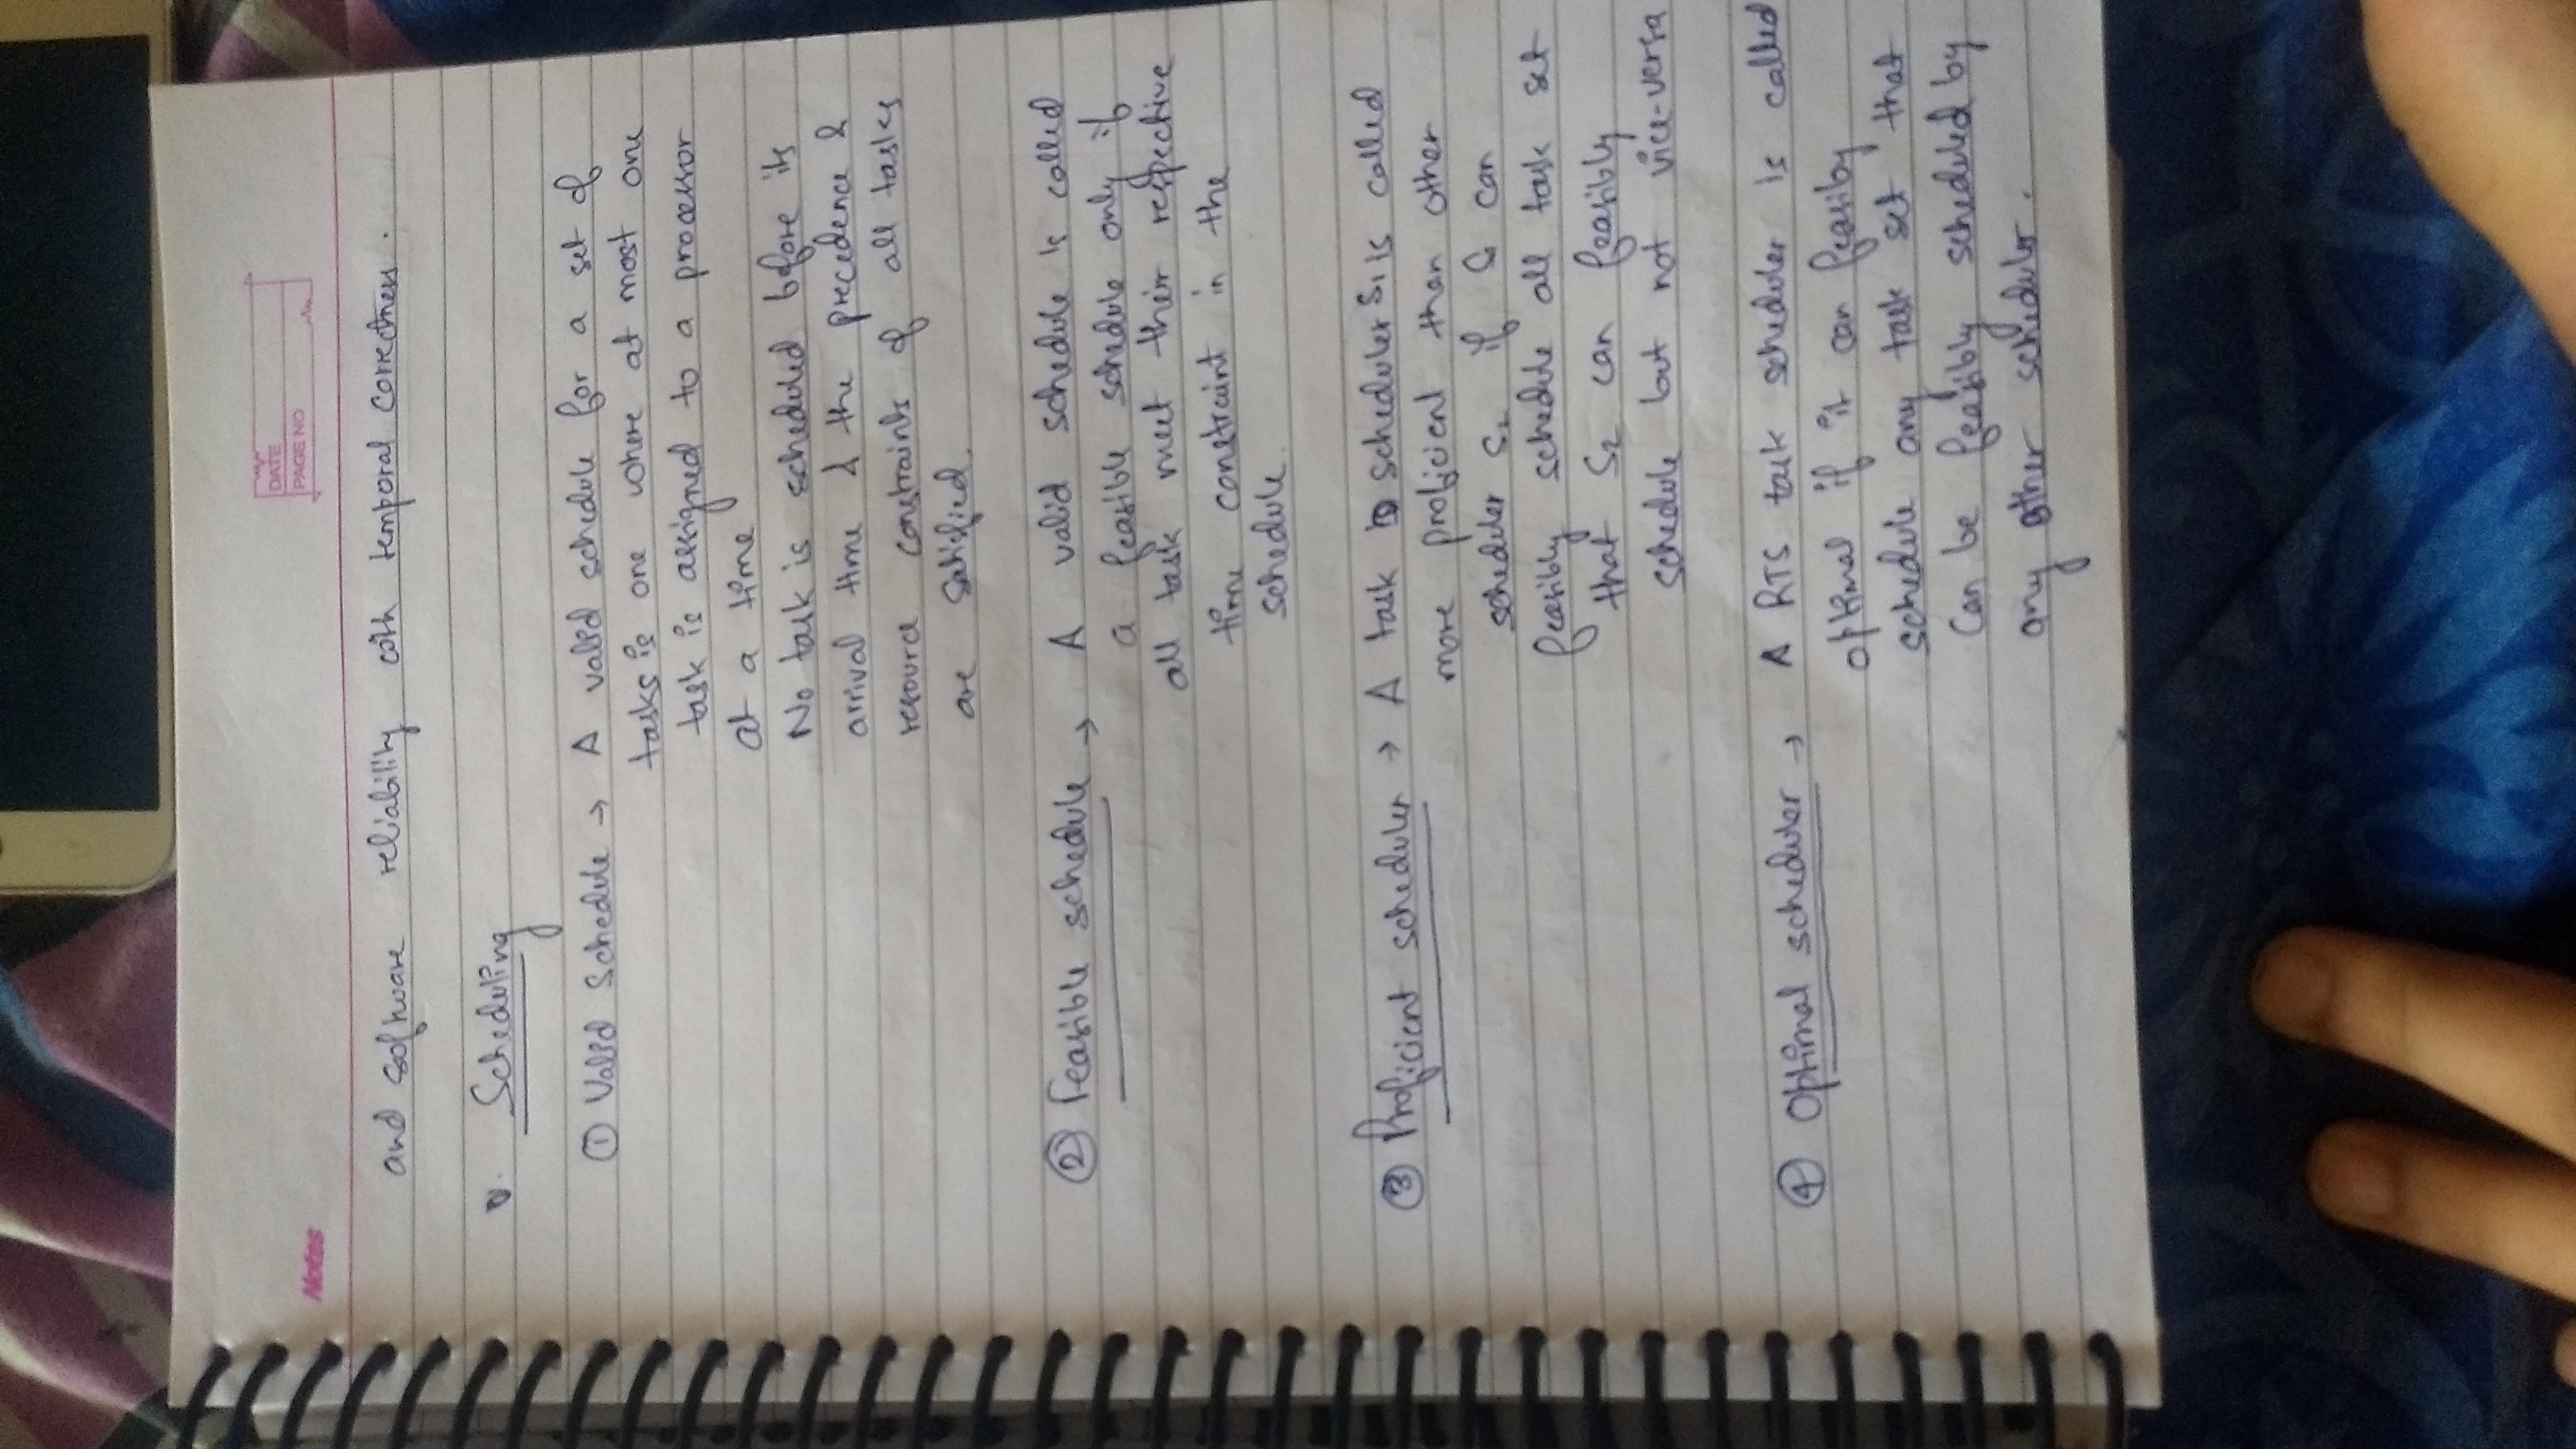 Notes
DATE
PAGE NO
and software reliability with temporal correctness.
Scheduling
① Valid schedule → A valid schedule for a set of
tasks is one where at most one
task is assigned to a processor
at a time
No task is scheduled before its
arrival time & the precedence &
resource constraints of all tasks
are satisfied.
② Feasible schedule → A valid schedule is called
a feasible schedule only if
all task meet their respective
time constraint in the
schedule.
③ Proficient scheduler → A task scheduler S1 is called
more proficient than other
scheduler S2 if S1 can
feasibly schedule all task set
that S2 can feasibly
schedule but not vice-versa
④ Optimal scheduler → A RTS task scheduler is called
optimal if it can feasiby
schedule any task set that
can be feasibly scheduled by
any other scheduler.